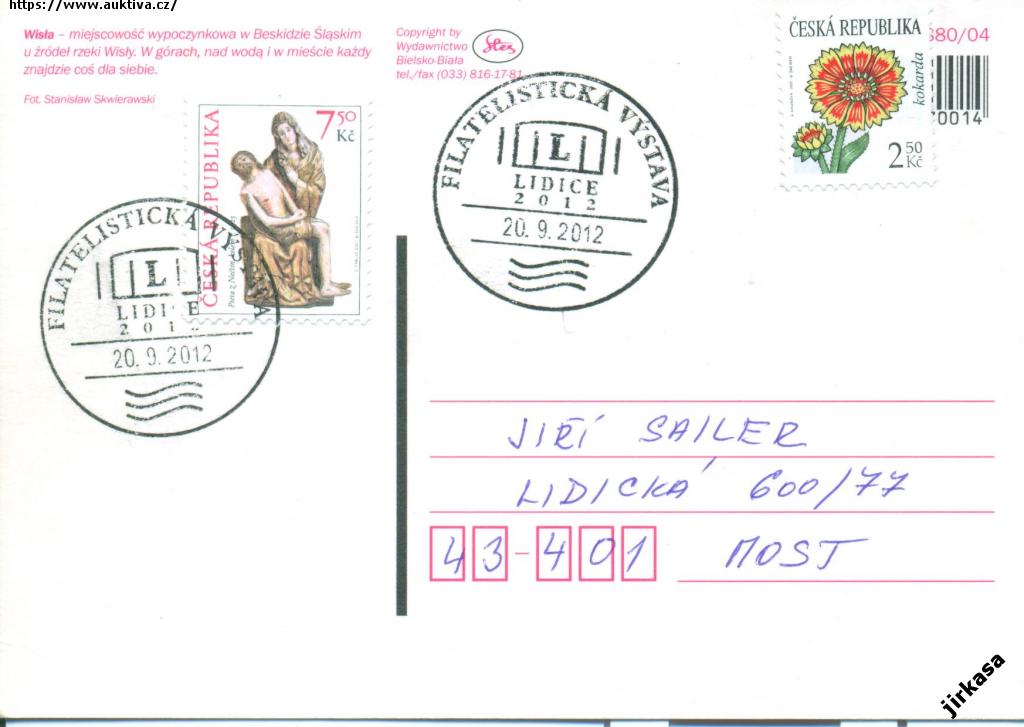 https://www.auktiva.cz/
Wisła – miejscowość wypoczynkowa w Beskidzie Śląskim
u źródeł rzeki Wisły. W górach, nad wodą i w mieście każdy
znajdzie coś dla siebie.
Fot. Stanisław Skwierawski
Copyright by
Wydawnictwo
Bielsko-Biała
tel./fax (033) 816-17-81
ČESKÁ REPUBLIKA
kokarda
2 50
Kč
680/04
70014
ČESKÁ REPUBLIKA
7 50
Kč
FILATELISTICKÁ VÝSTAVA
L
LIDICE
2012
20.9.2012
FILATELISTICKÁ VÝSTAVA
L
LIDICE
2012
20.9.2012
JIŘÍ SAILER
LIDICKÁ 600/77
43-401 MOST
jirkasa